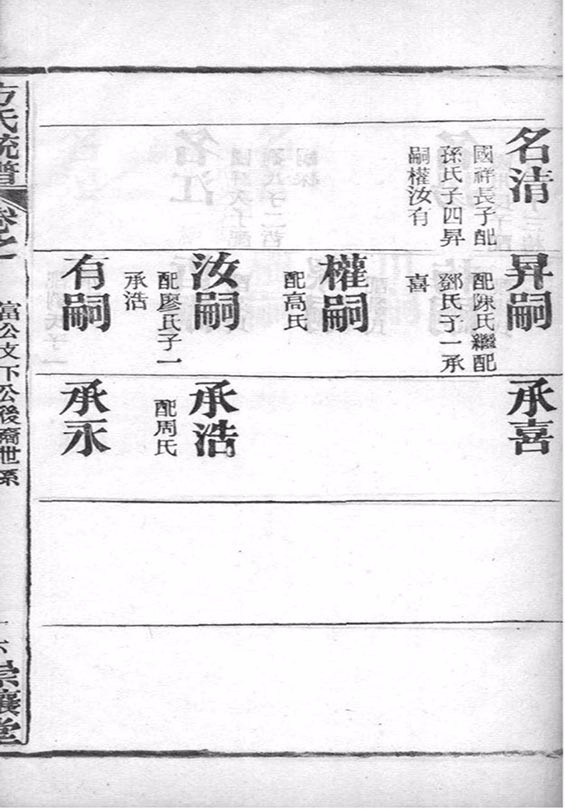 名清
國祥長子配
孫氏子四昇
嗣權汝有
昇嗣
配陳氏繼配
鄧氏子一承
喜
權嗣
配高氏
汝嗣
配廖氏子一
承浩
有嗣
承喜
承浩
配周氏
承永
方氏統譜
卷之一
富公文下公後裔世系
崇讓堂